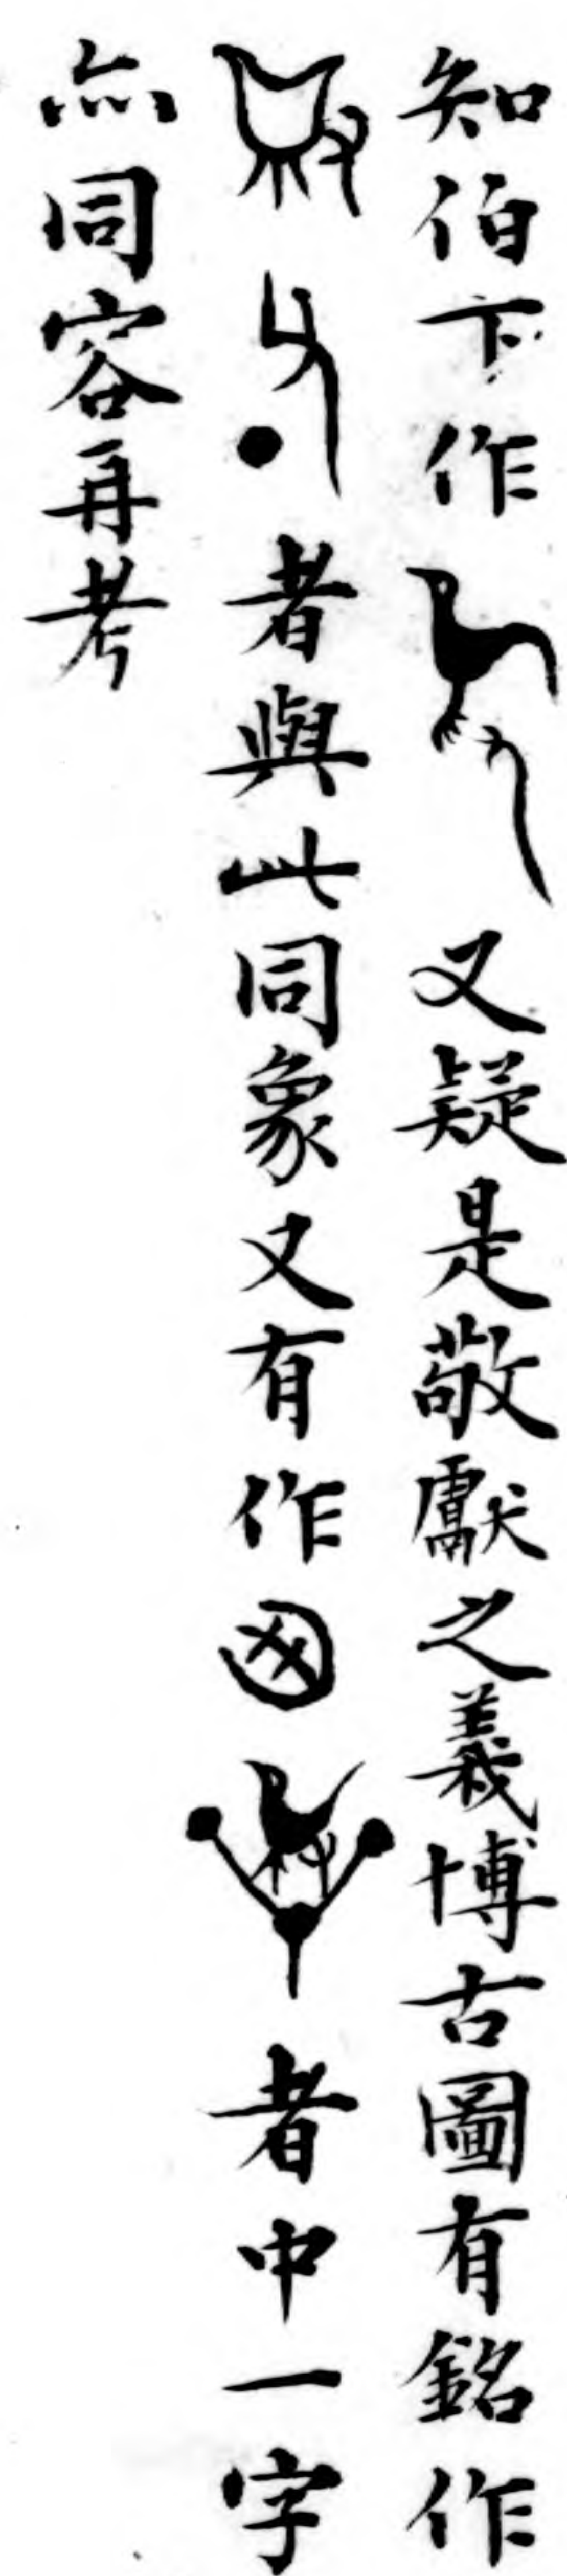 知伯下作又疑是敬獻之義博古圖有銘作
者與此同象又有作者中一字
亦同容再考